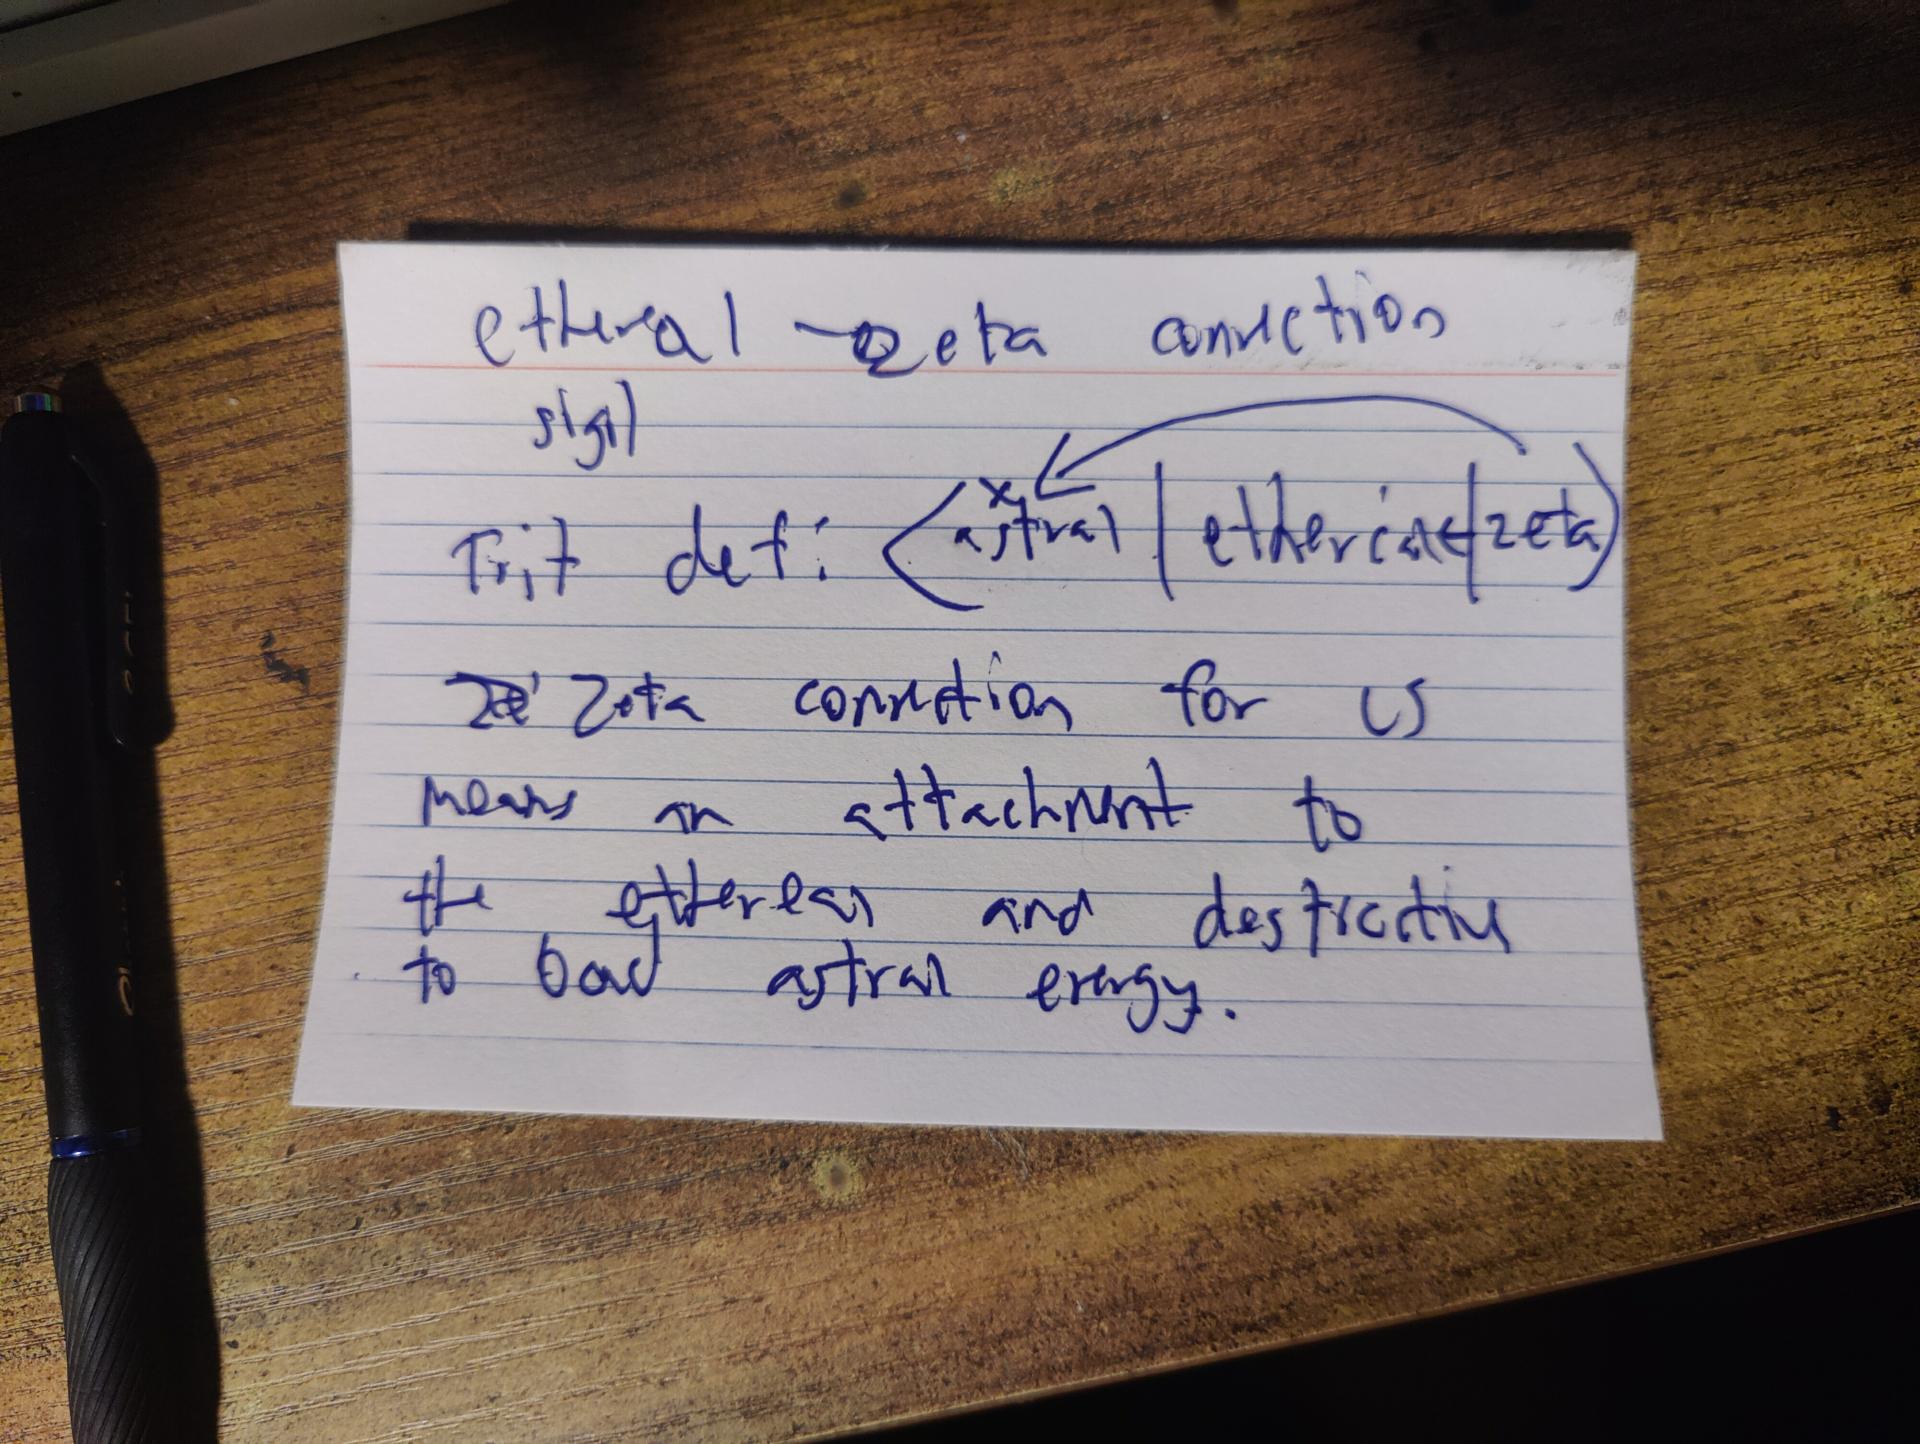 ethereal - zeta connection
sigil
Trit def: (astral | etheric | zeta)
Zeta connection for us
means an attachment to
the ethereal and destructive
to bad astral energy.